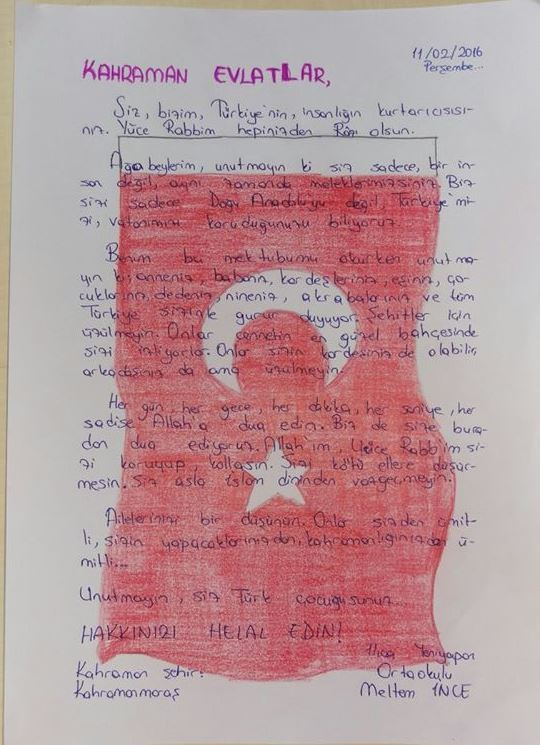 11/02/2016
Perşembe...
KAHRAMAN EVLATLAR,
Siz, bizim, Türkiye'nin, insanlığın kurtarıcısısı-
nız. Yüce Rabbim hepinizden Razı olsun.
Ağabeylerim, unutmayın ki siz sadece, bir in-
san değil, aynı zamanda meleklerimizsiniz. Biz
sizi sadece Doğu Anadolu'yu değil, Türkiye'mi-
zi, vatanımızı koruduğunuzu biliyoruz.
Benim bu mektubumu okurken unutma-
yın ki, anneniz, babanız, kardeşleriniz, eşiniz, ço-
cuklarınız, dedeniz, nineniz, akrabalarınız ve tüm
Türkiye sizinle gurur duyuyor. Şehitler için
üzülmeyin. Onlar cennetin en güzel bahçesinde
sizi izliyorlar. Onlar sizin kardeşiniz de olabilir,
arkadaşınız da ama üzülmeyin.
Her gün, her gece, her dakika, her saniye, her
sadise Allah'a dua edin. Biz de size bura-
dan dua ediyoruz. Allah'ım, Yüce Rabb'im si-
zi koruyup, kollasın. Sizi kötü ellere düşür-
mesin. Siz asla İslam dininden vazgeçmeyin.
Ailelerinizi bir düşünün. Onlar sizden ümit-
li, sizin yapacaklarınızdan, kahramanlığınızdan ü-
mitli...
Unutmayın, siz Türk çocuğusunuz...
HAKKINIZI HELAL EDİN!
Ilıca Yeniyapan
Kahraman şehir: Ortaokulu
Kahramanmaraş Meltem İNCE